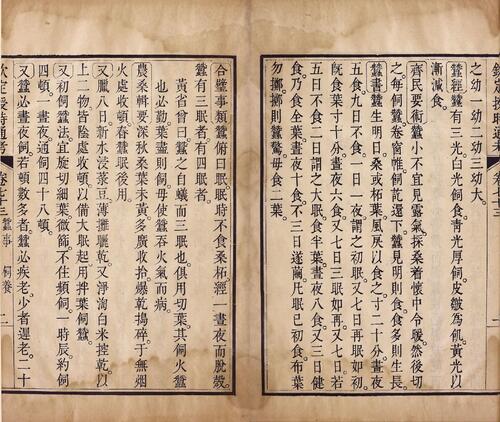 之幼一幼二幼一幼大。
蠶經蠶有三光白光飼食。青光厚飼。皮皺為飢。黃光以
漸減食。
齊民要術蠶小不宜見露氣。採桑着懷中令煖。然後切
之。每飼蠶卷窗幃。飼訖還下。蠶見明則食。食多則生長。
蠶書蠶生明日。桑或柘葉。風戾以食之。寸二十分。晝夜
五食。九日不食一日一夜。謂之初眠。又七日再眠如初。
既食葉寸十分。晝夜六食。又七日三眠如再。又七日若
五日不食二日。謂之大眠。食半葉。晝夜八食。又三日健
食乃食全葉。晝夜十食。不三日遂繭。凡眠已初食布葉
勿擲。擲則蠶驚。毋食二葉。
合璧事類蠶俯曰眠。眠時不食桑柘。經一晝夜而脫殼。
蠶有三眠者有四眠者。
黃省曾曰。蠶之自蟻而三眠也。俱用切葉。其飼火蠶
也必勤。葉盡則飼。毋使蠶吞火氣而病。
農桑輯要深秋桑葉未黃。多廣收拾。爆乾搗碎。于無烟
火處收頓。春蠶眠後用。
又臘八日新水浸菉豆。薄攤曬乾。又淨淘白米控乾。以
上二物皆陰處收頓。以備大眠起用。拌葉飼蠶。
又初飼蠶法。宜旋切細葉微篩。不住頻飼。一時辰約飼
四頓。一晝夜通飼四十八頓。
又蠶必晝夜飼。若頓數多者。蠶必疾老。少者遲老。二十
欽定授時通考 卷七十三 蠶事 飼養 二